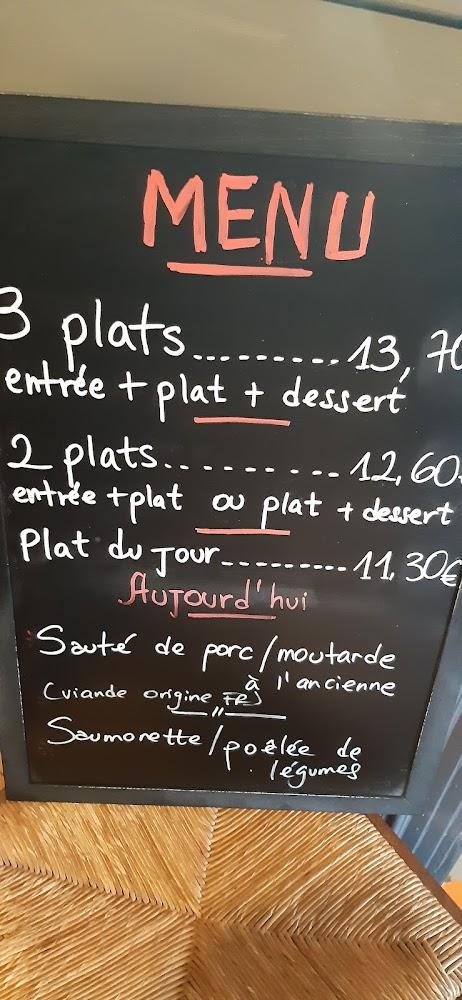 MENU
3 plats.........13,70
entrée + plat + dessert
2 plats.........12,60
entrée + plat ou plat + dessert
Plat du Jour.........11,30€
Aujourd'hui
Sauté de porc/moutarde
à l'ancienne
(viande origine FR)
"
Saumonette/poêlée de
légumes